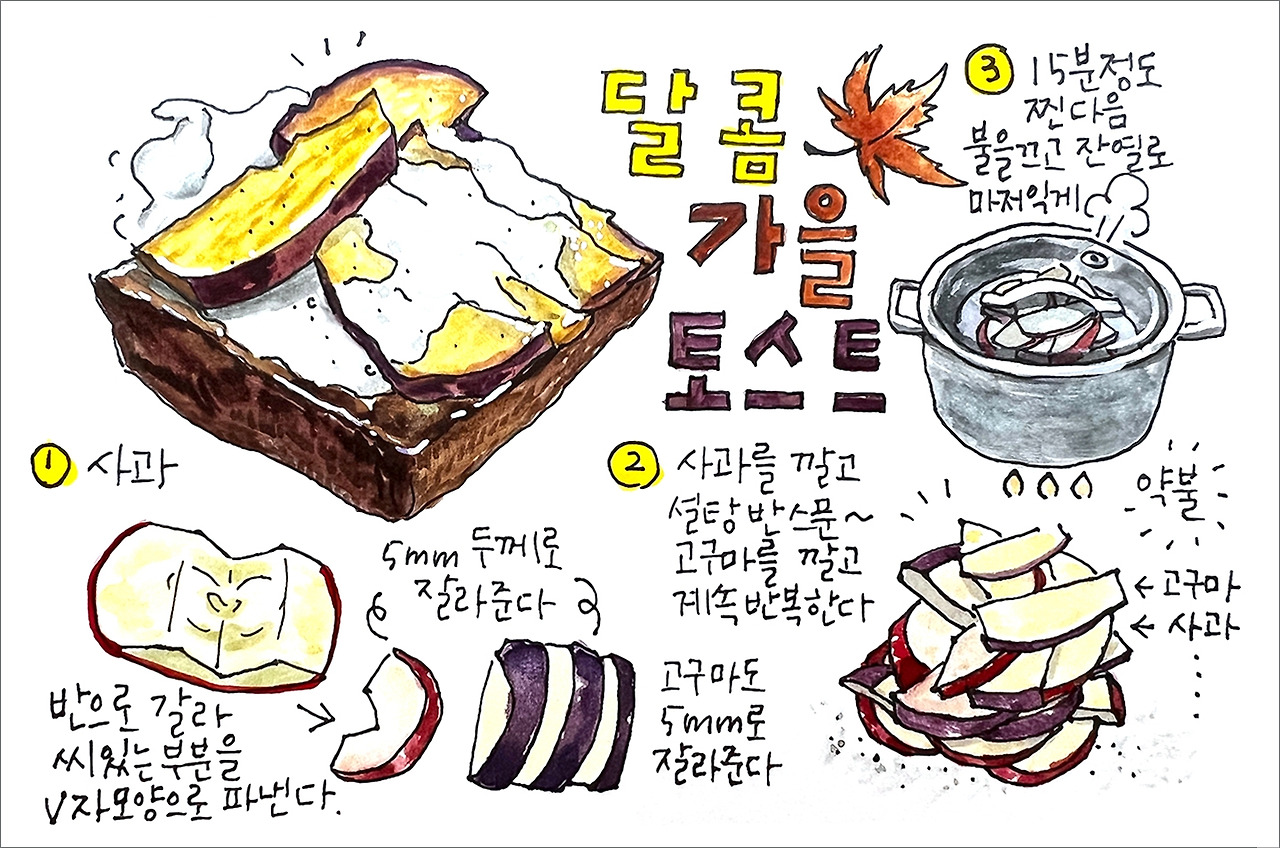 달콤
가을
토스트
1 사과
반으로 갈라
씨있는부분을
V자모양으로 파낸다.
5mm 두께로
잘라준다
고구마도
5mm로
잘라준다
2 사과를 깔고
설탕 반 스푼~
고구마를 깔고
계속 반복한다
← 고구마
← 사과
3 15분정도
찐다음
불을끄고 잔열로
마저익게
약불